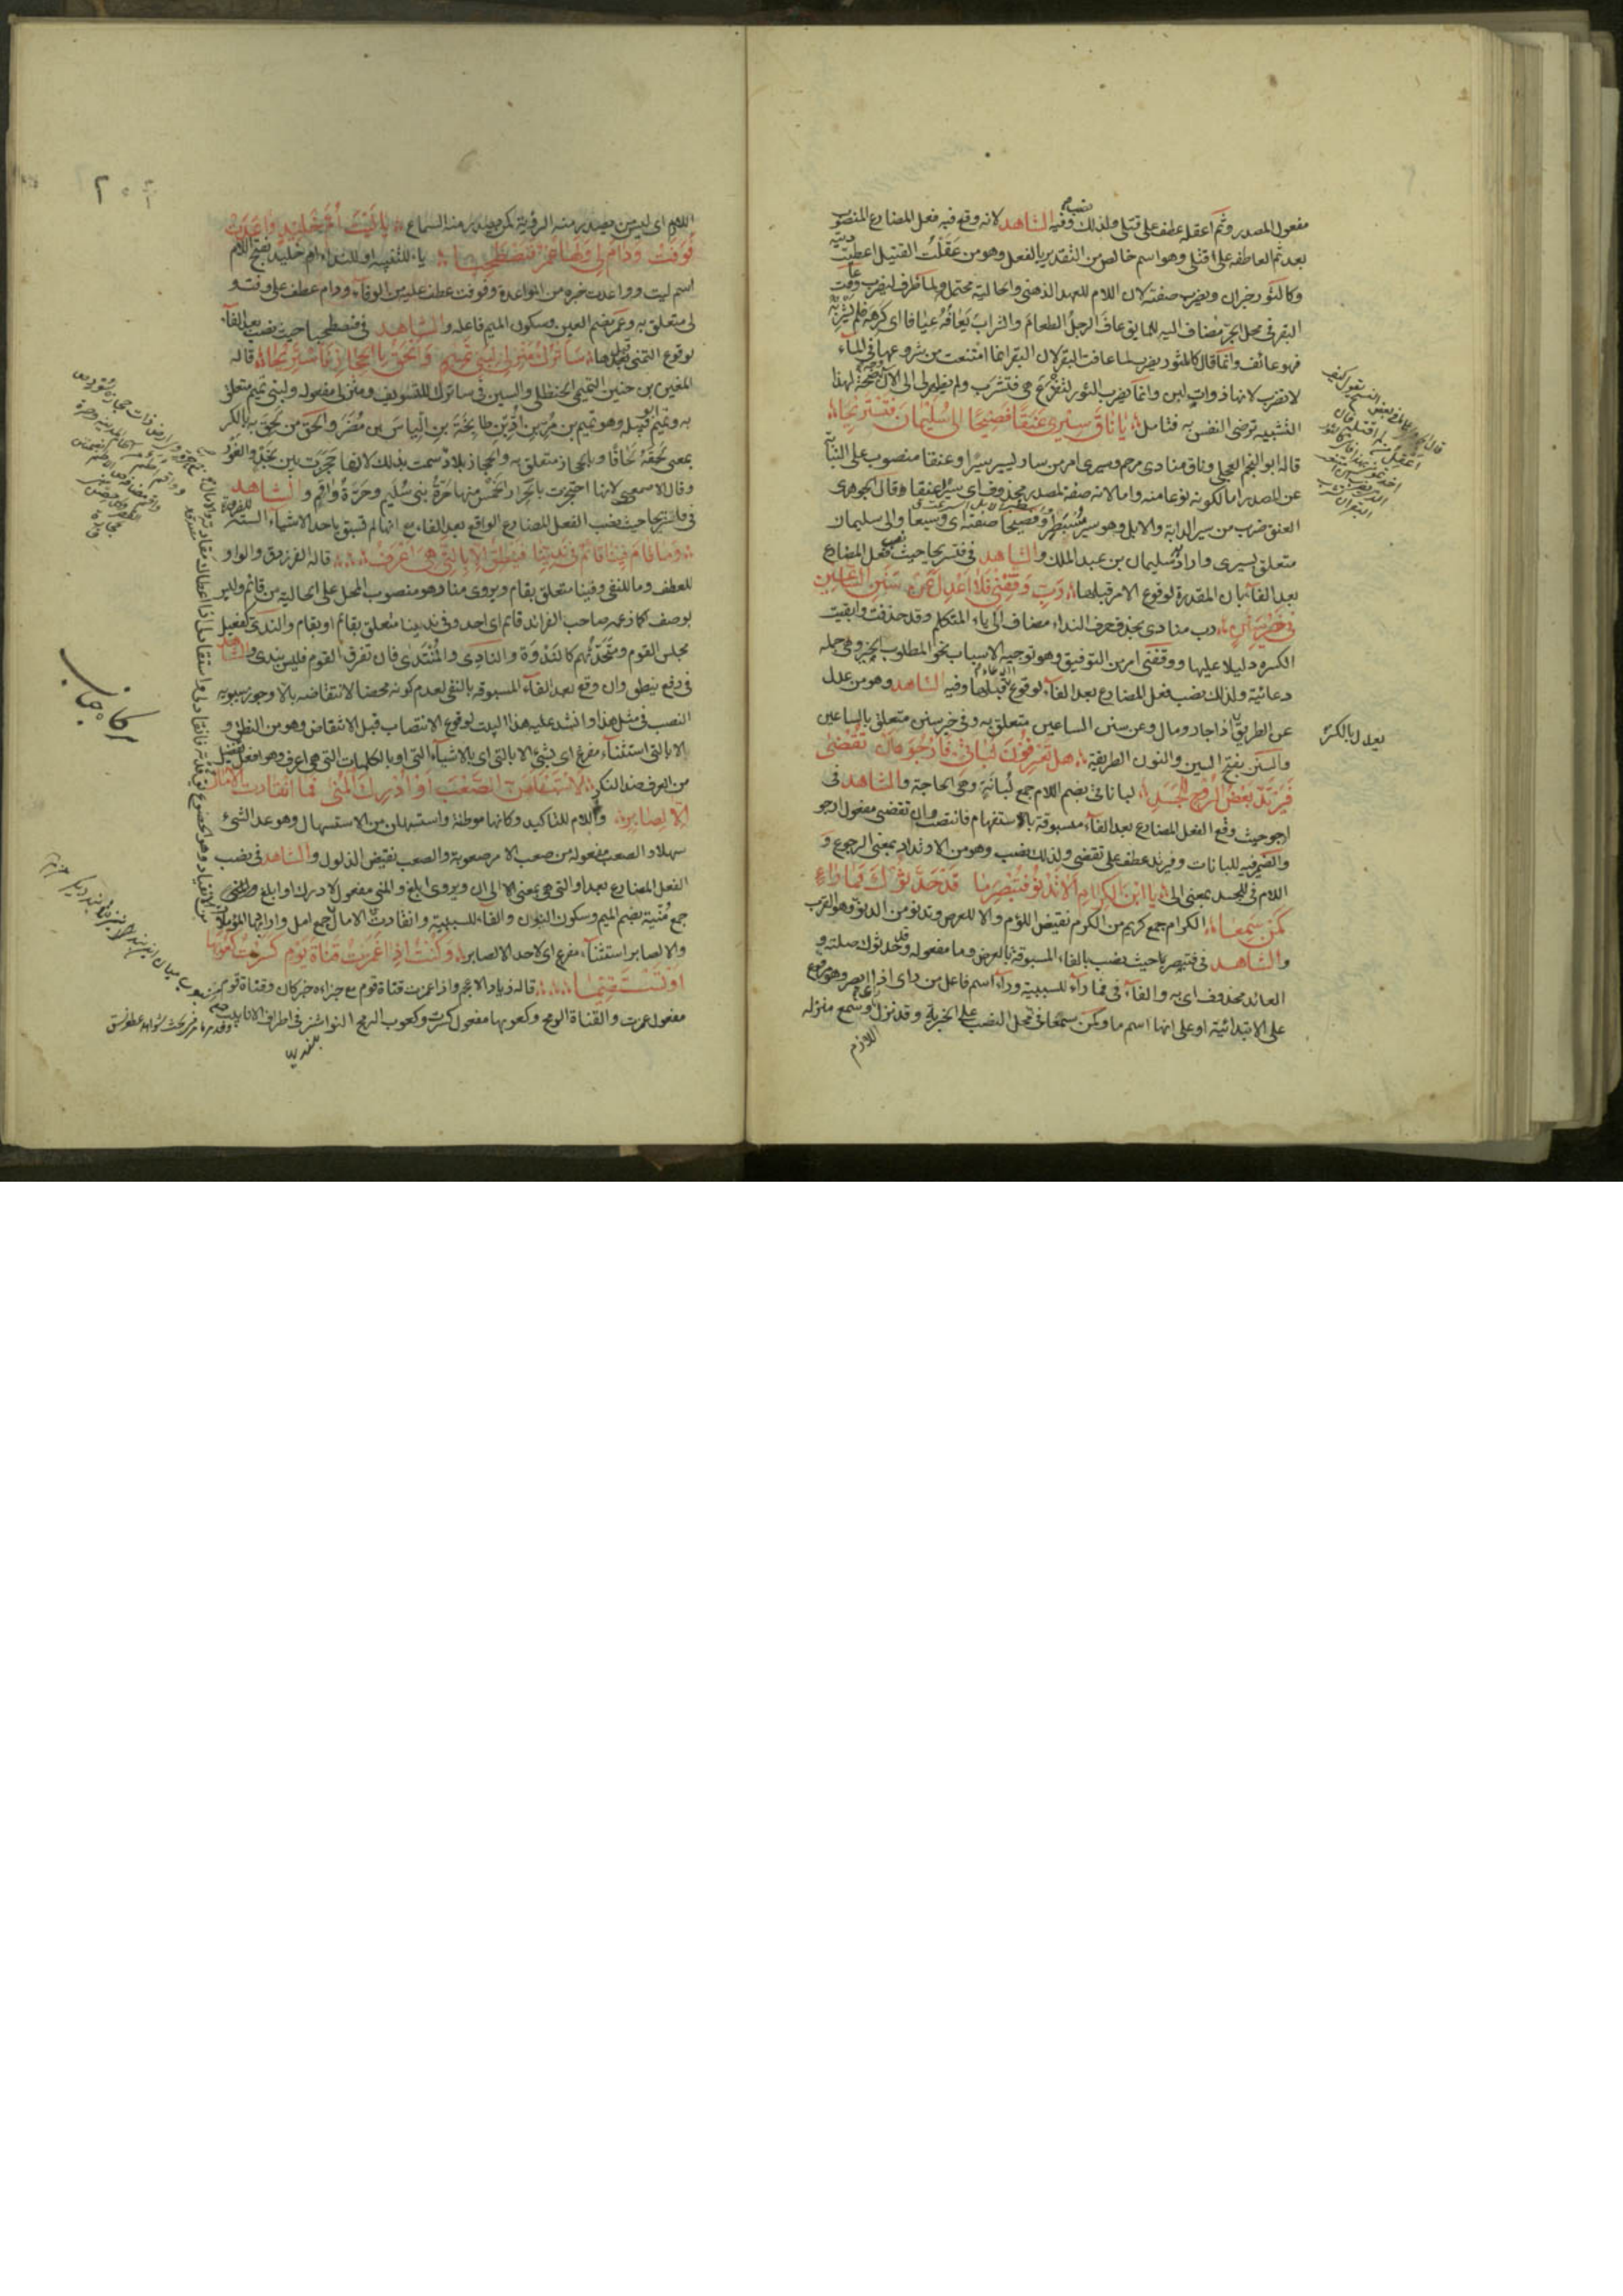 مفعول المصدر وثم اعقله عطف على قتلى ولذلك نصب وفيه الشاهد لانه وقع فيه فعل المضارع المنصوب
بعد ثم العاطفة على قتلى وهو اسم خالص من التقدير بالفعل وهو من عقلت القتيل اعطيت ديته
وكالثور خبران ويضرب صفته لان اللام للعهد الذهنى والحالية محتمل ولما ظرف ليضرب عافت
البقر فى محل الجر مضاف اليه للما يق عاف الرجل الطعام والشراب يعافه عيافا اى كرهه فلم يشربه
فهو عائف وانما قال كالثور يضرب لما عافت البقر لان البقر انما امتنعت من شروعها فى الماء
لا تضرب لانها ذوات لبن وانما يضرب الثور لتفزع هى فتشرب ولم يظهر لى الى الآن وجه لهذا
التشبيه ترضى النفس به فتامل يا ناق سيرى عنقا فصيحا الى سليمان فنستريحا
قاله ابو النجم العجلى وناق منادى مرخم وسيرى امر من سار يسير سيرا وعنقا منصوب على النيابة
عن المصدر اما لكونه نوعا منه واما لانه صفة لمصدر محذوف اى سيرا عنقا وقال الجوهرى
العنق ضرب من سير الدابة والابل وهو سير مسبطر وفصيحا صفته اى وسيعا والى سليمان
متعلق بسيرى واراد به سليمان بن عبد الملك والشاهد فى فنستريحا حيث نصب فعل المضارع
بعد الفاء بان المقدرة لوقوع الامر قبلها رب وفقنى فلا اعدل عن سنن الساعين
فى خير سنن رب منادى بحذف حرف النداء مضاف الى ياء المتكلم وقد حذفت وابقيت
الكسرة دليلا عليها ووفقنى امر من التوفيق وهو توجيه الاسباب نحو المطلوب الخير وهى جملة
دعائية ولذلك نصب فعل المضارع بعد الفاء لوقوع الدعاء قبلها وفيه الشاهد وهو من عدل
عن الطريق اذا جاد ومال وعن سنن الساعين متعلق به وفى خير سنن متعلق بالساعين
والسنن بفتح السين والنون الطريقة هل تعرفون لباناتى فارجو ان تقضى
فيرتد بعض الروح للجسد لباناتى بضم اللام جمع لبانة وهى الحاجة والشاهد فى
ارجو حيث وقع الفعل المضارع بعد الفاء مسبوقة بالاستفهام فانتصب وان تقضى مفعول ارجو
والضمير فيه للبانات وفيرتد عطف على تقضى ولذلك نصب وهو من الارتداد بمعنى الرجوع و
اللام فى للجسد بمعنى الى يا ابن الكرام الا تدنو فتبصر ما قد حدثوك فما راء
كمن سمعا الكرام جمع كريم من الكرم نقيض اللؤم والا للعرض وتدنو من الدنو وهو القرب
والشاهد فى فتبصر ما حيث نصب بالفاء المسبوقة بالعرض وما مفعوله وقد حدثوك صلته و
العائد محذوف اى به والفاء فى فما راء للسببية وراء اسم فاعل من راى اذا ابصر وهو مرفوع
على الابتدائية او على انها اسم ما وكمن سمعا فى محل النصب على الخبرية وقد نزل وسمع منزلة
اللازم
يعدل بالكسر
٢٠٥
اللهم اى ليس من مصدر منه الرؤية كمن مصدر منه السماع يا ليت ام خليد واعدت
فوفت ودام لى ولها عمر فنصطحبا يا للتنبيه او للنداء وام خليد بفتح اللام
اسم ليت وواعدت خبره من المواعدة وفوفت عطف عليه من الوفاء ودام عطف على وفت و
لى متعلق به وعمر بضم العين وسكون الميم فاعله والشاهد فى فنصطحبا حيث نصب بعد الفاء
لوقوع التمنى قبلها سأترك منزلى لبنى تميم والحق بالحجاز فاستريحا قاله
المغيرة بن حنين التميمى الحنظلى والسين فى ساترك للتسويف ومنزلى مفعوله ولبنى تميم متعلق
به وتميم ابو قبيلة وهو تميم بن مر بن اد بن طابخة بن الياس بن مضر والحق من لحق به بالكسر
بمعنى لحقه لحاقا وبالحجاز متعلق به والحجاز بلاد سميت بذلك لانها حجزت بين نجد والغور
وقال الاصمعى لانها احتجزت بالحرار الخمس منها حرة بنى سليم وحرة واقم والشاهد
فى فاستريحا حيث نصب الفعل المضارع الواقع بعد الفاء مع انها لم تسبق باحد الاشياء الستة
وما قام فينا قائم فى ندينا فينطق الا بالتى هى اعرف قاله الفرزدق والواو
للعطف وما للنفى وفينا متعلق بقام ويروى منا وهو منصوب المحل على الحالية من قائم وليس
بوصف كما زعمه صاحب الفرائد قائم اى احد وفى ندينا متعلق بقائم او بقام والندى كفعيل
مجلس القوم ومتحدثهم كالندوة والنادى والمنتدى فان تفرق القوم فليس بندى والشاهد
فى رفع ينطق وان وقع بعد الفاء المسبوقة بالنفى لعدم كونه محضا لانتقاضه بالا وجوز سيبويه
النصب فى مثل هذا وانشد عليه هذا البيت لوقوع الانتصاب قبل الانتقاض وهو من النطق و
الا بالتى استثناء مفرغ اى بشئ الا بالتى اى بالاشياء التى او بالكلمات التى هى اعرف وهو افعل تفضيل
من العرف ضد النكر لاستسهلن الصعب او ادرك المنى فما انقادت الآمال
الا لصابر واللام للتاكيد وكانها موطئة واستسهلن من الاستسهال وهو عد الشئ
سهلا والصعب مفعوله من صعب الامر صعوبة والصعب نقيض الذلول والشاهد فى نصب
الفعل المضارع بعد او التى هى بمعنى الا الى ان ويروى ابلغ والمنى مفعول لادرك او ابلغ والمنى
جمع منية بضم الميم وسكون النون والفاء للسببية وانقادت الآمال جمع امل واراد بها المؤمل
والا لصابر استثناء مفرغ اى لاحد الا لصابر وكنت اذا غمزت قناة قوم كسرت كعوبها
او تستقيما قاله زياد الاعجم واذا غمزت قناة قوم مع جزاءه خبر كان وقناة قوم
مفعول غمزت والقناة الرمح وكعوبها مفعول كسرت وكعوب الرمح النواشز فى اطراف الانابيب